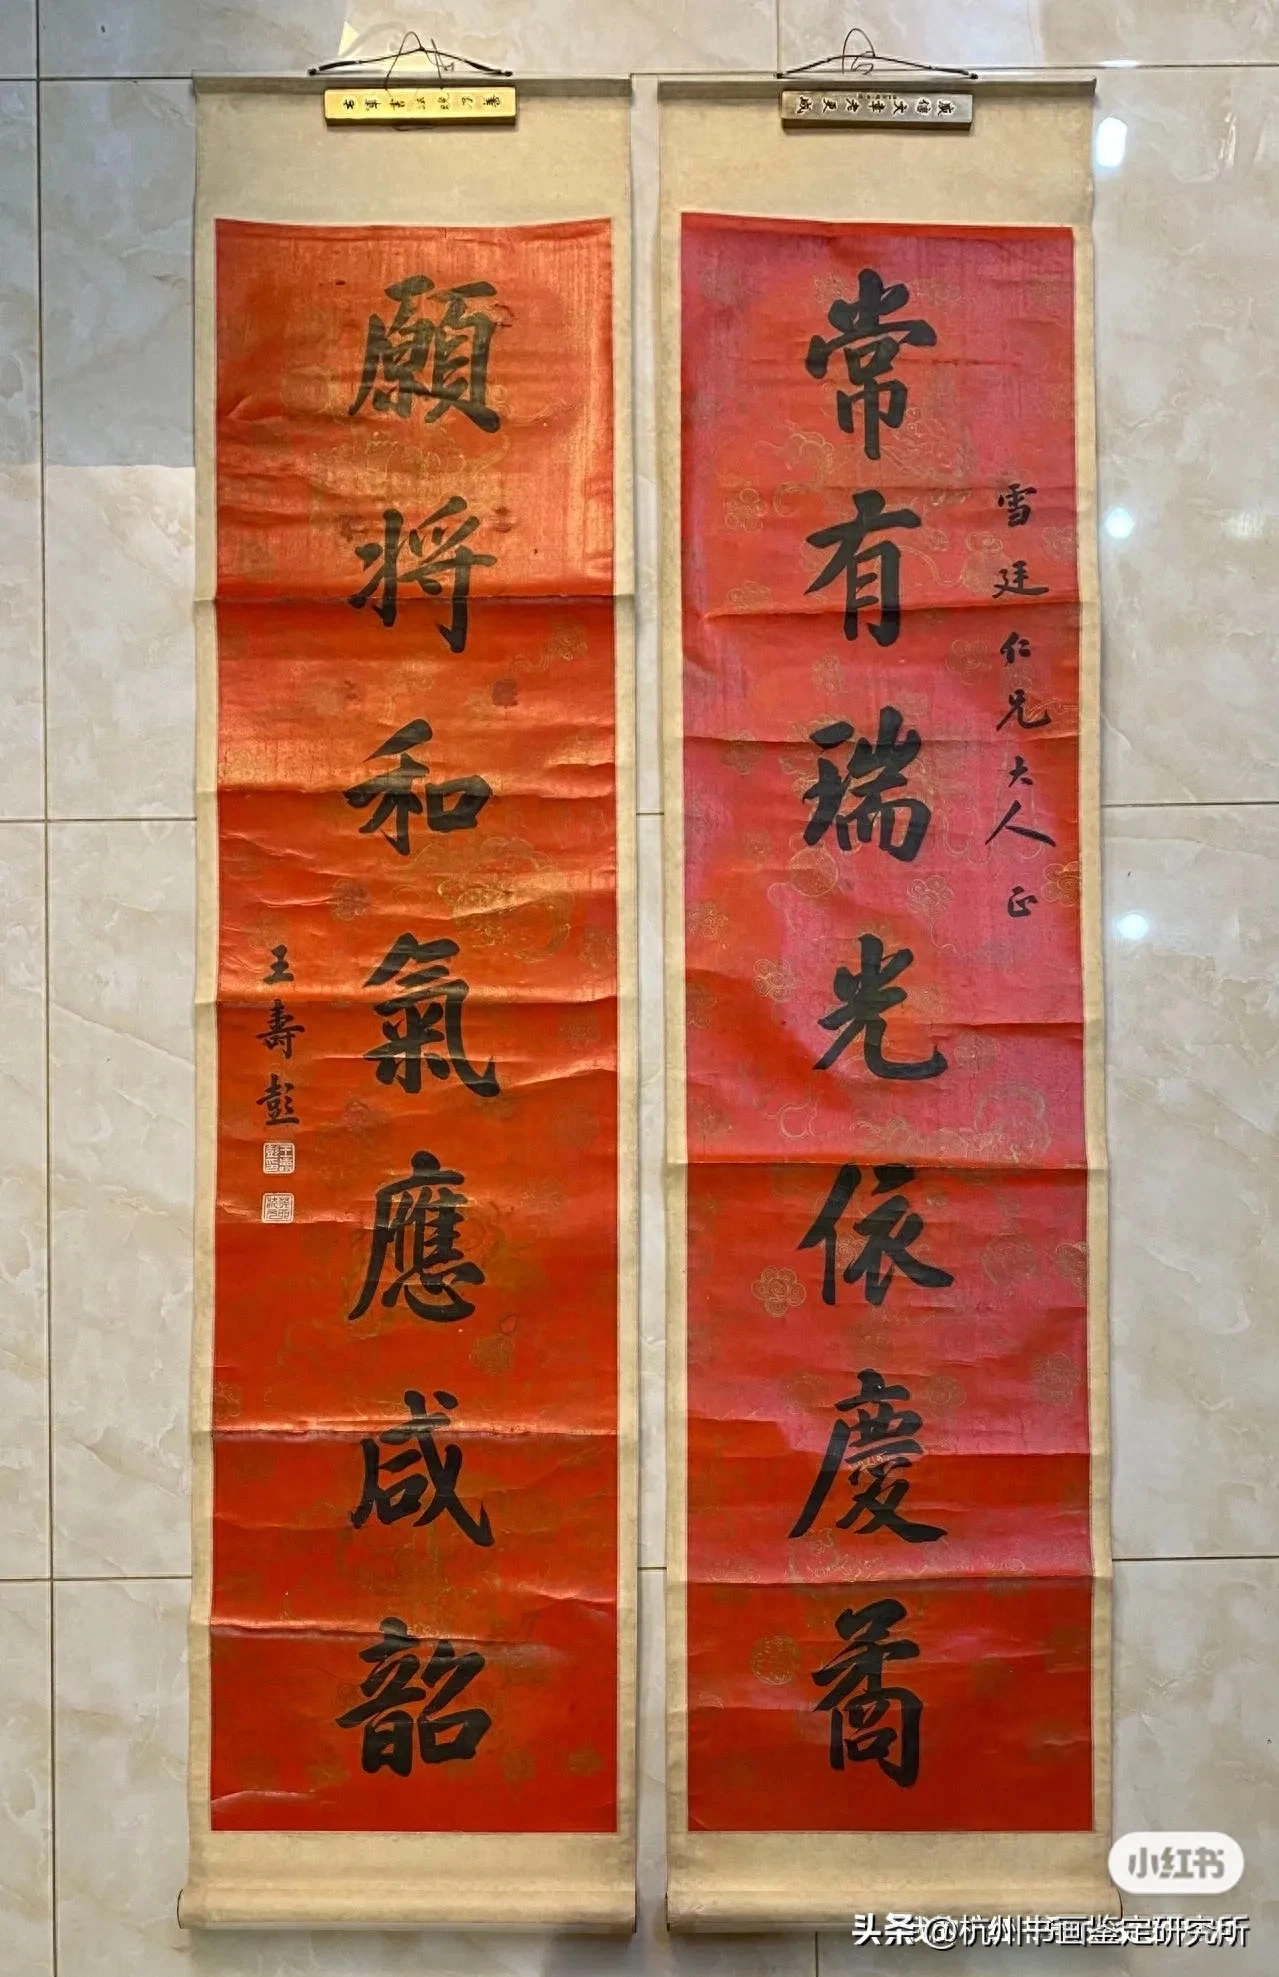 常有瑞光依慶矞
雪廷仁兄大人正
願將和氣應咸韶
王壽彭
小红书
头条@杭州书画鉴定研究所